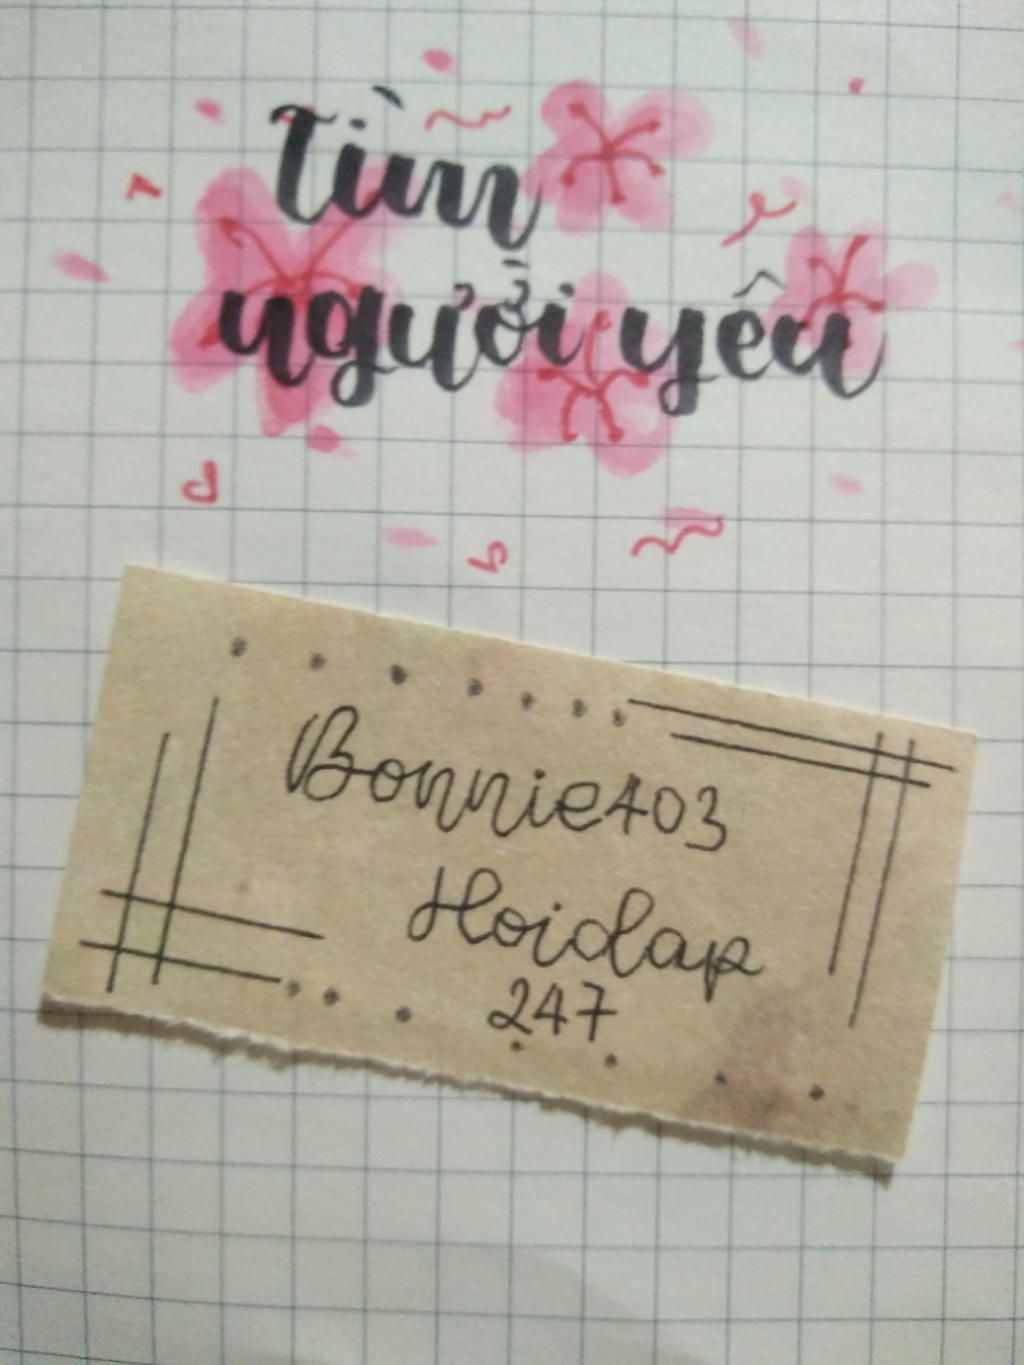 Tìm
người yêu
Bonnie403
Hoidap
247